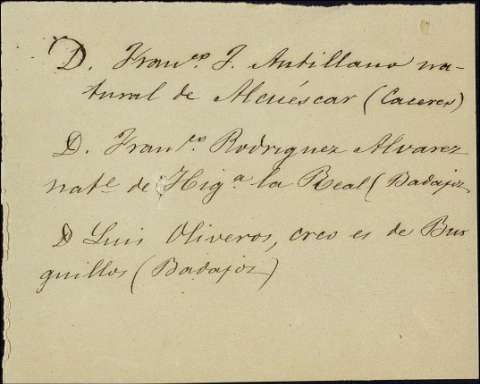 D. Fran.co J. Antillano na-
tural de Alcuéscar (Caceres)
D. Fran.co Rodriguez Alvarez
nat.l de Hig.a la Real (Badajoz
D Luis Oliveros, creo es de Bur
guillos (Badajoz)